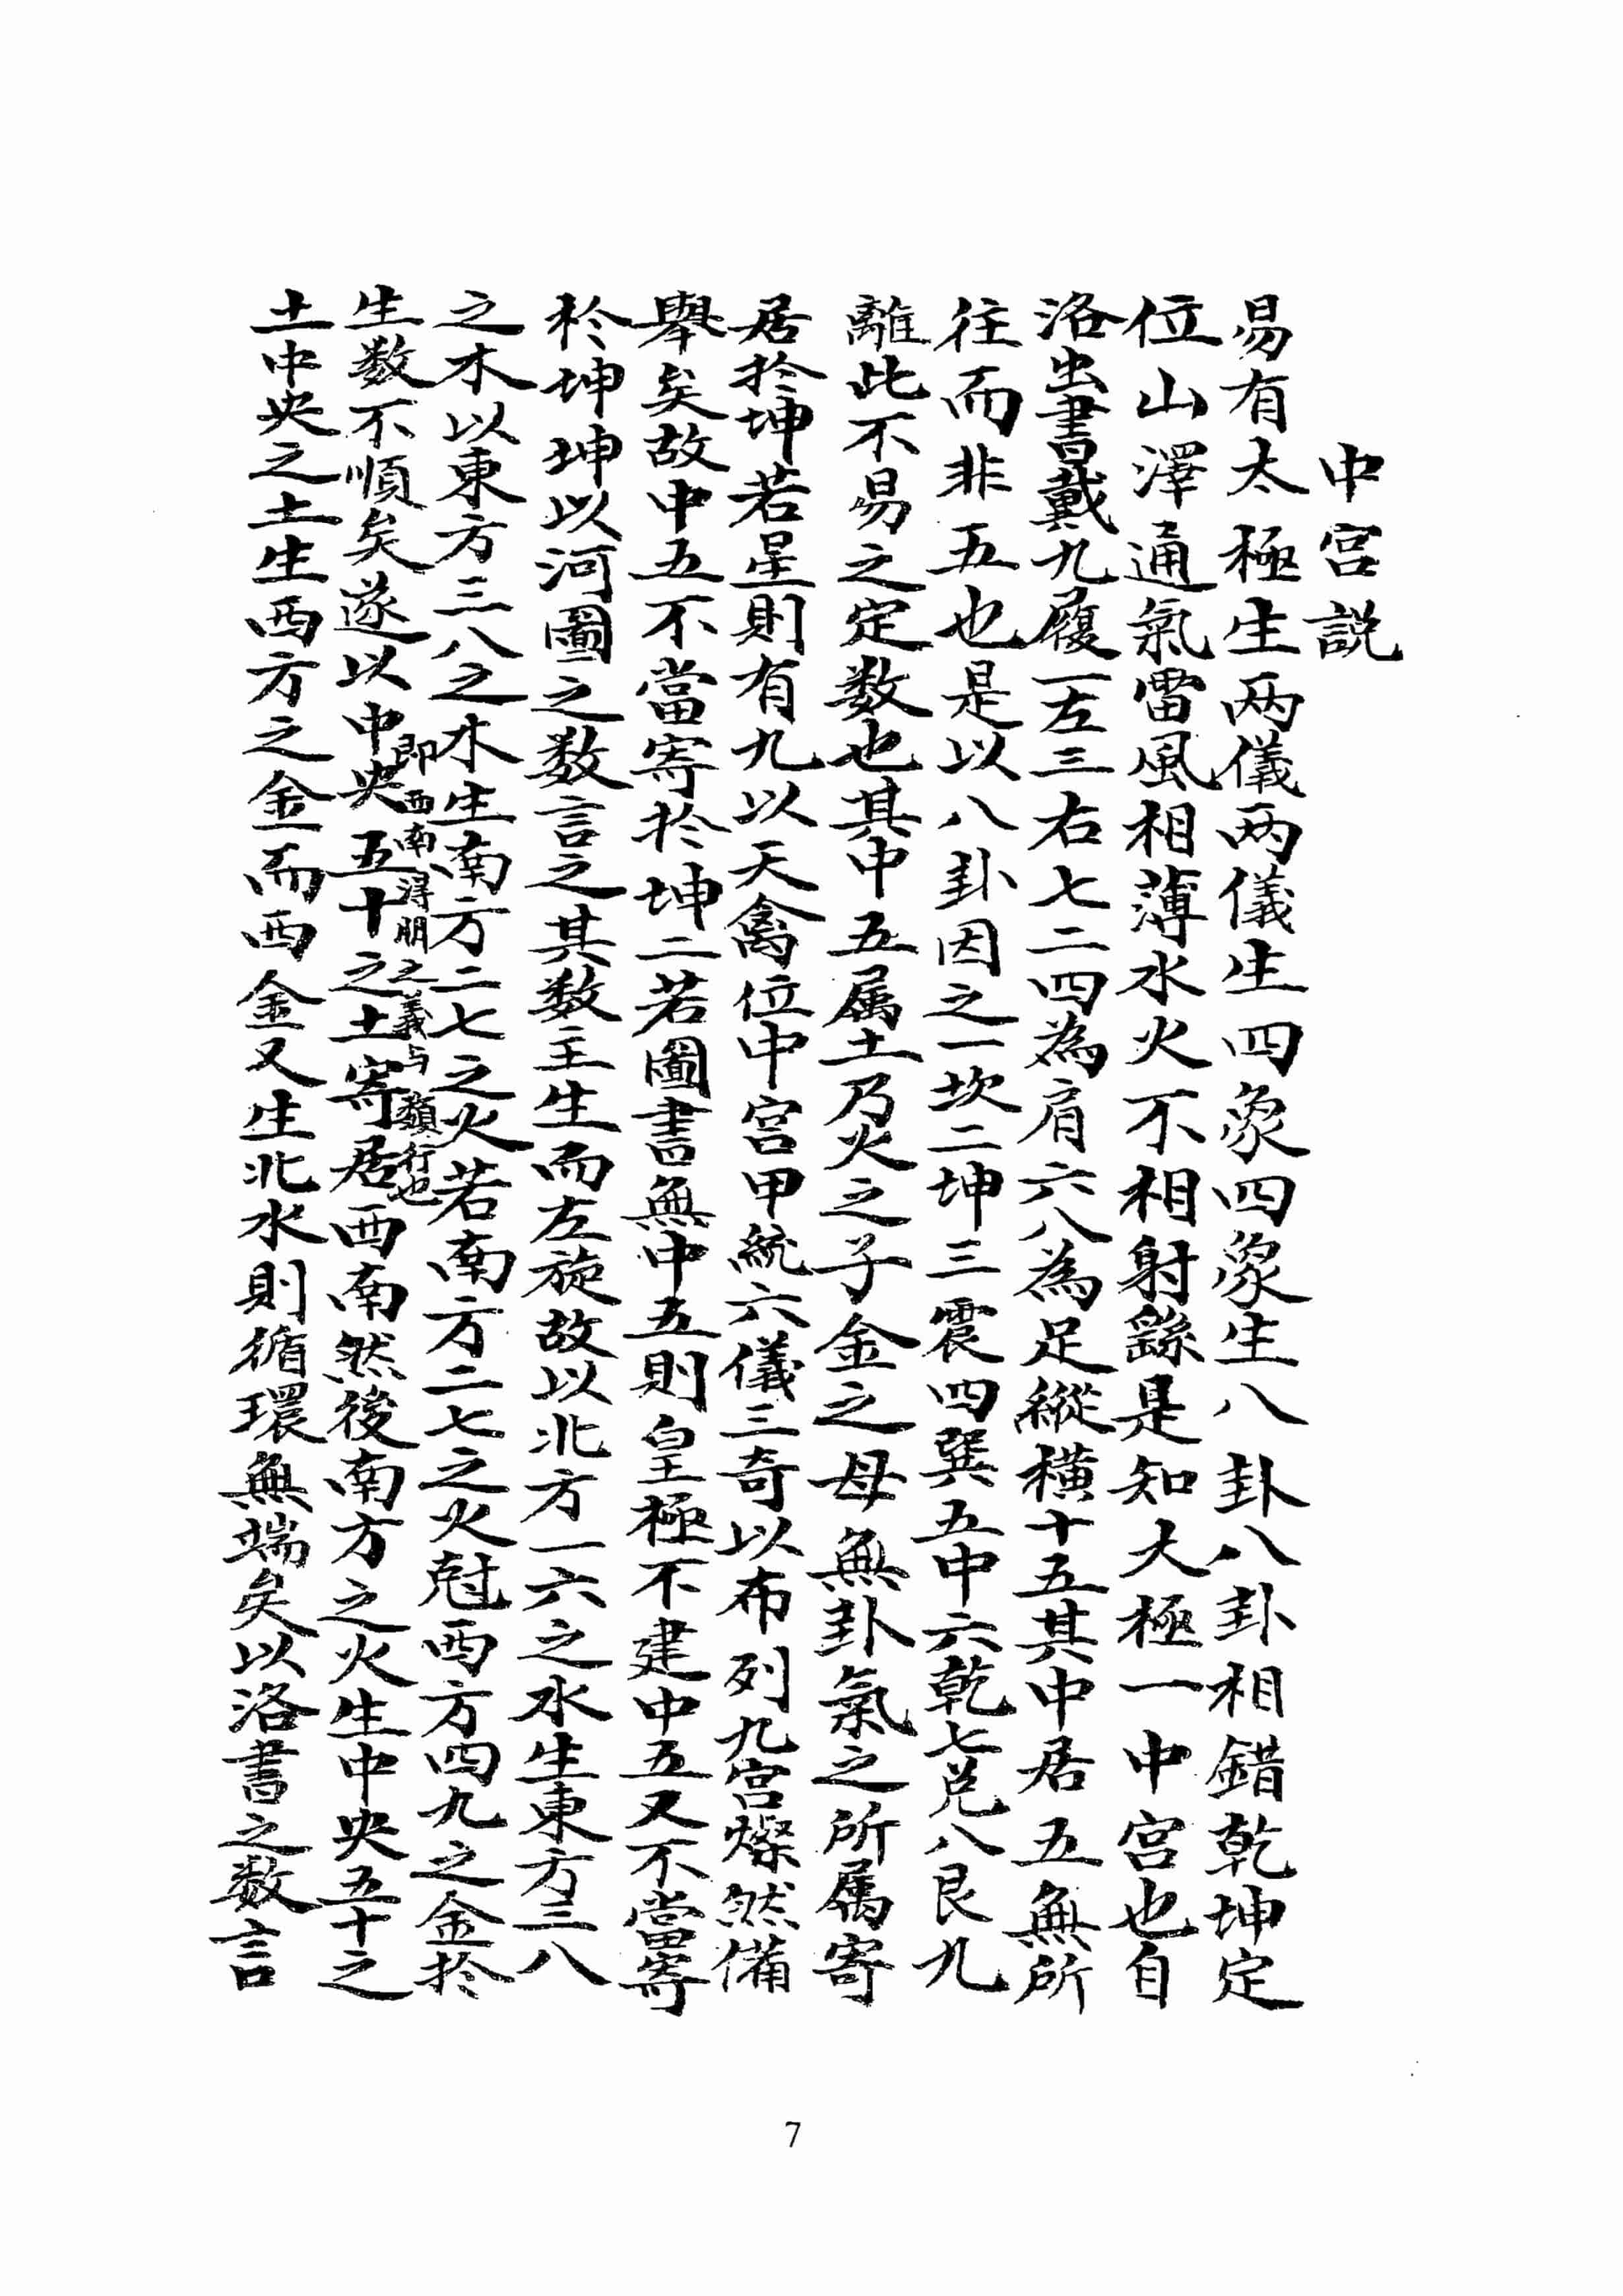 中宮説
易有太極生两儀两儀生四象四象生八卦八卦相錯乾坤定
位山澤通氣雷風相薄水火不相射繇是知大極一中宮也自
洛出書戴九履一左三右七二四為肩六八為足縱橫十五其中居五無所
往而非五也是以八卦因之一坎二坤三震四巽五中六乾七兑八艮九
離此不易之定数也其中五属土乃火之子金之母無卦氣之所属寄
居於坤若星則有九以天禽位中宮甲統六儀三奇以布列九宮燦然備
舉矣故中五不當寄於坤二若圖書無中五則皇極不建中五又不當寄
於坤坤以河圖之数言之其数主生而左旋故以北方一六之水生東方三八
之木以東方三八之木生南方二七之火若南方二七之火尅西方四九之金於
生数不順矣遂以中央五十之土寄居西南然後南方之火生中央五十之
即西南得朋之義与類行也
土中央之土生西方之金而西金又生北水則循環無端矣以洛書之数言
7